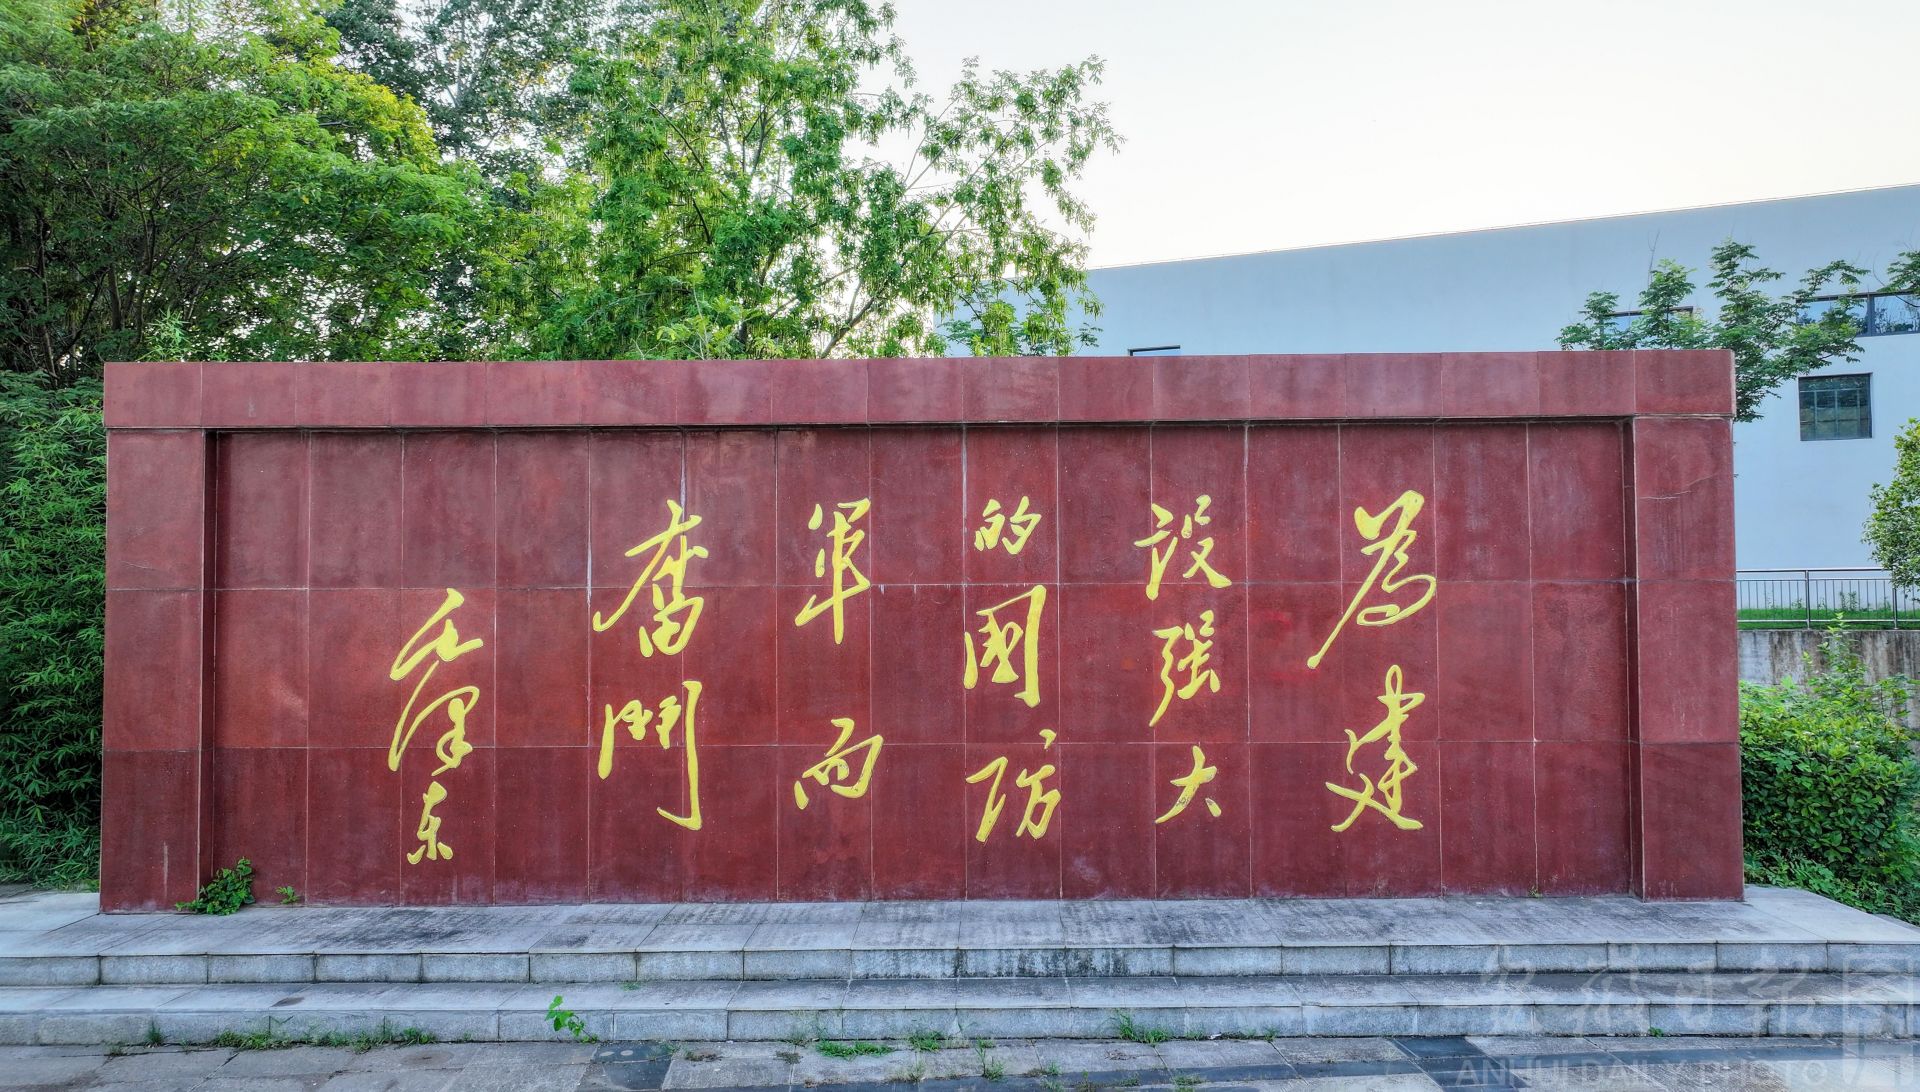 為建
設强大
的國防
軍而
奮鬥
毛澤东
安徽日报
ANHUI DAILY PHOTO